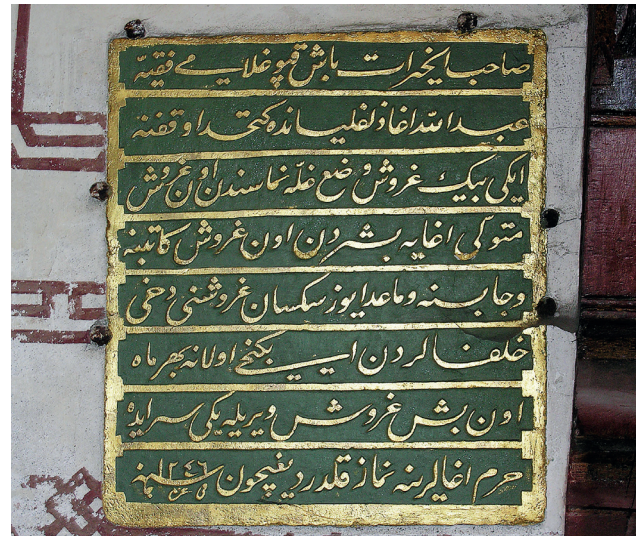 صاحب الخيرات باش قپو غلامي فقيه
عبد الله اغا كتخدا وقفنه
ايكی بيك غروش وضع غلّه نماسندن اون غروش
متولی اغايه بشردن اون غروش كاتبنه
وجابيسنه وماعدا يوز سكسان غروشنی دخی
خلفالردن ايكنجی اولانه بهر ماه
اون بش غروش ويريله يكی سرايده
حرم اغالرينه نماز قلدرديغيچون ١٢٤٦